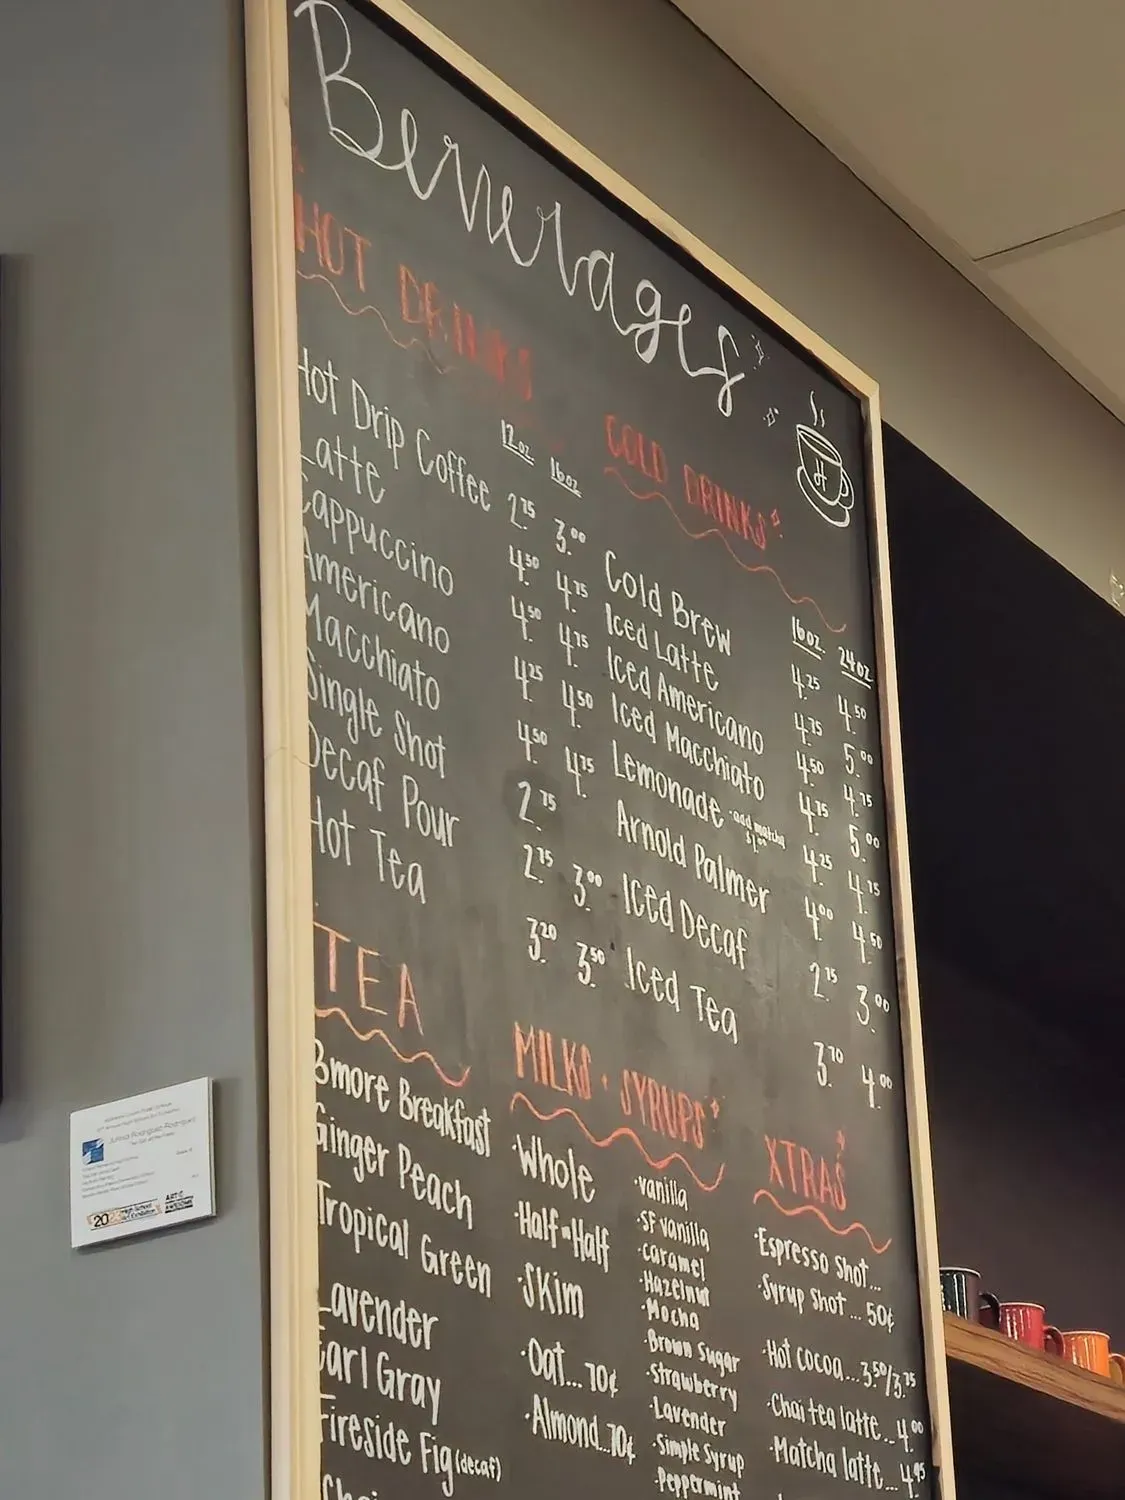 Beverages
HOT DRINKS
12oz 16oz
Hot Drip Coffee 2.75 3.00
Latte 4.50 4.75
Cappuccino 4.50 4.75
Americano 4.25 4.50
Macchiato 4.50 4.75
Single Shot 2.75
Decaf Pour 2.75 3.00
Hot Tea 3.20 3.50
COLD DRINKS
16oz 24oz
Cold Brew 4.25 4.50
Iced Latte 4.75 5.00
Iced Americano 4.50 4.75
Iced Macchiato 4.75 5.00
Lemonade ·add matcha $1.00 4.25 4.75
Arnold Palmer 4.00 4.50
Iced Decaf 2.75 3.00
Iced Tea 3.70 4.00
H
TEA
Bmore Breakfast
Ginger Peach
Tropical Green
Lavender
Earl Gray
Fireside Fig (decaf)
Chai
MILKS · SYRUPS
·Whole
·Half-Half
·Skim
·Oat... 70¢
·Almond...70¢
·vanilla
·SF vanilla
·caramel
·Hazelnut
·Mocha
·Brown Sugar
·Strawberry
·Lavender
·Simple Syrup
·Peppermint
XTRAS
·Espresso Shot...
·Syrup Shot... 50¢
·Hot cocoa...3.50/3.75
·Chai tea latte...4.00
·Matcha latte...4.95
High School
Art Exhibition